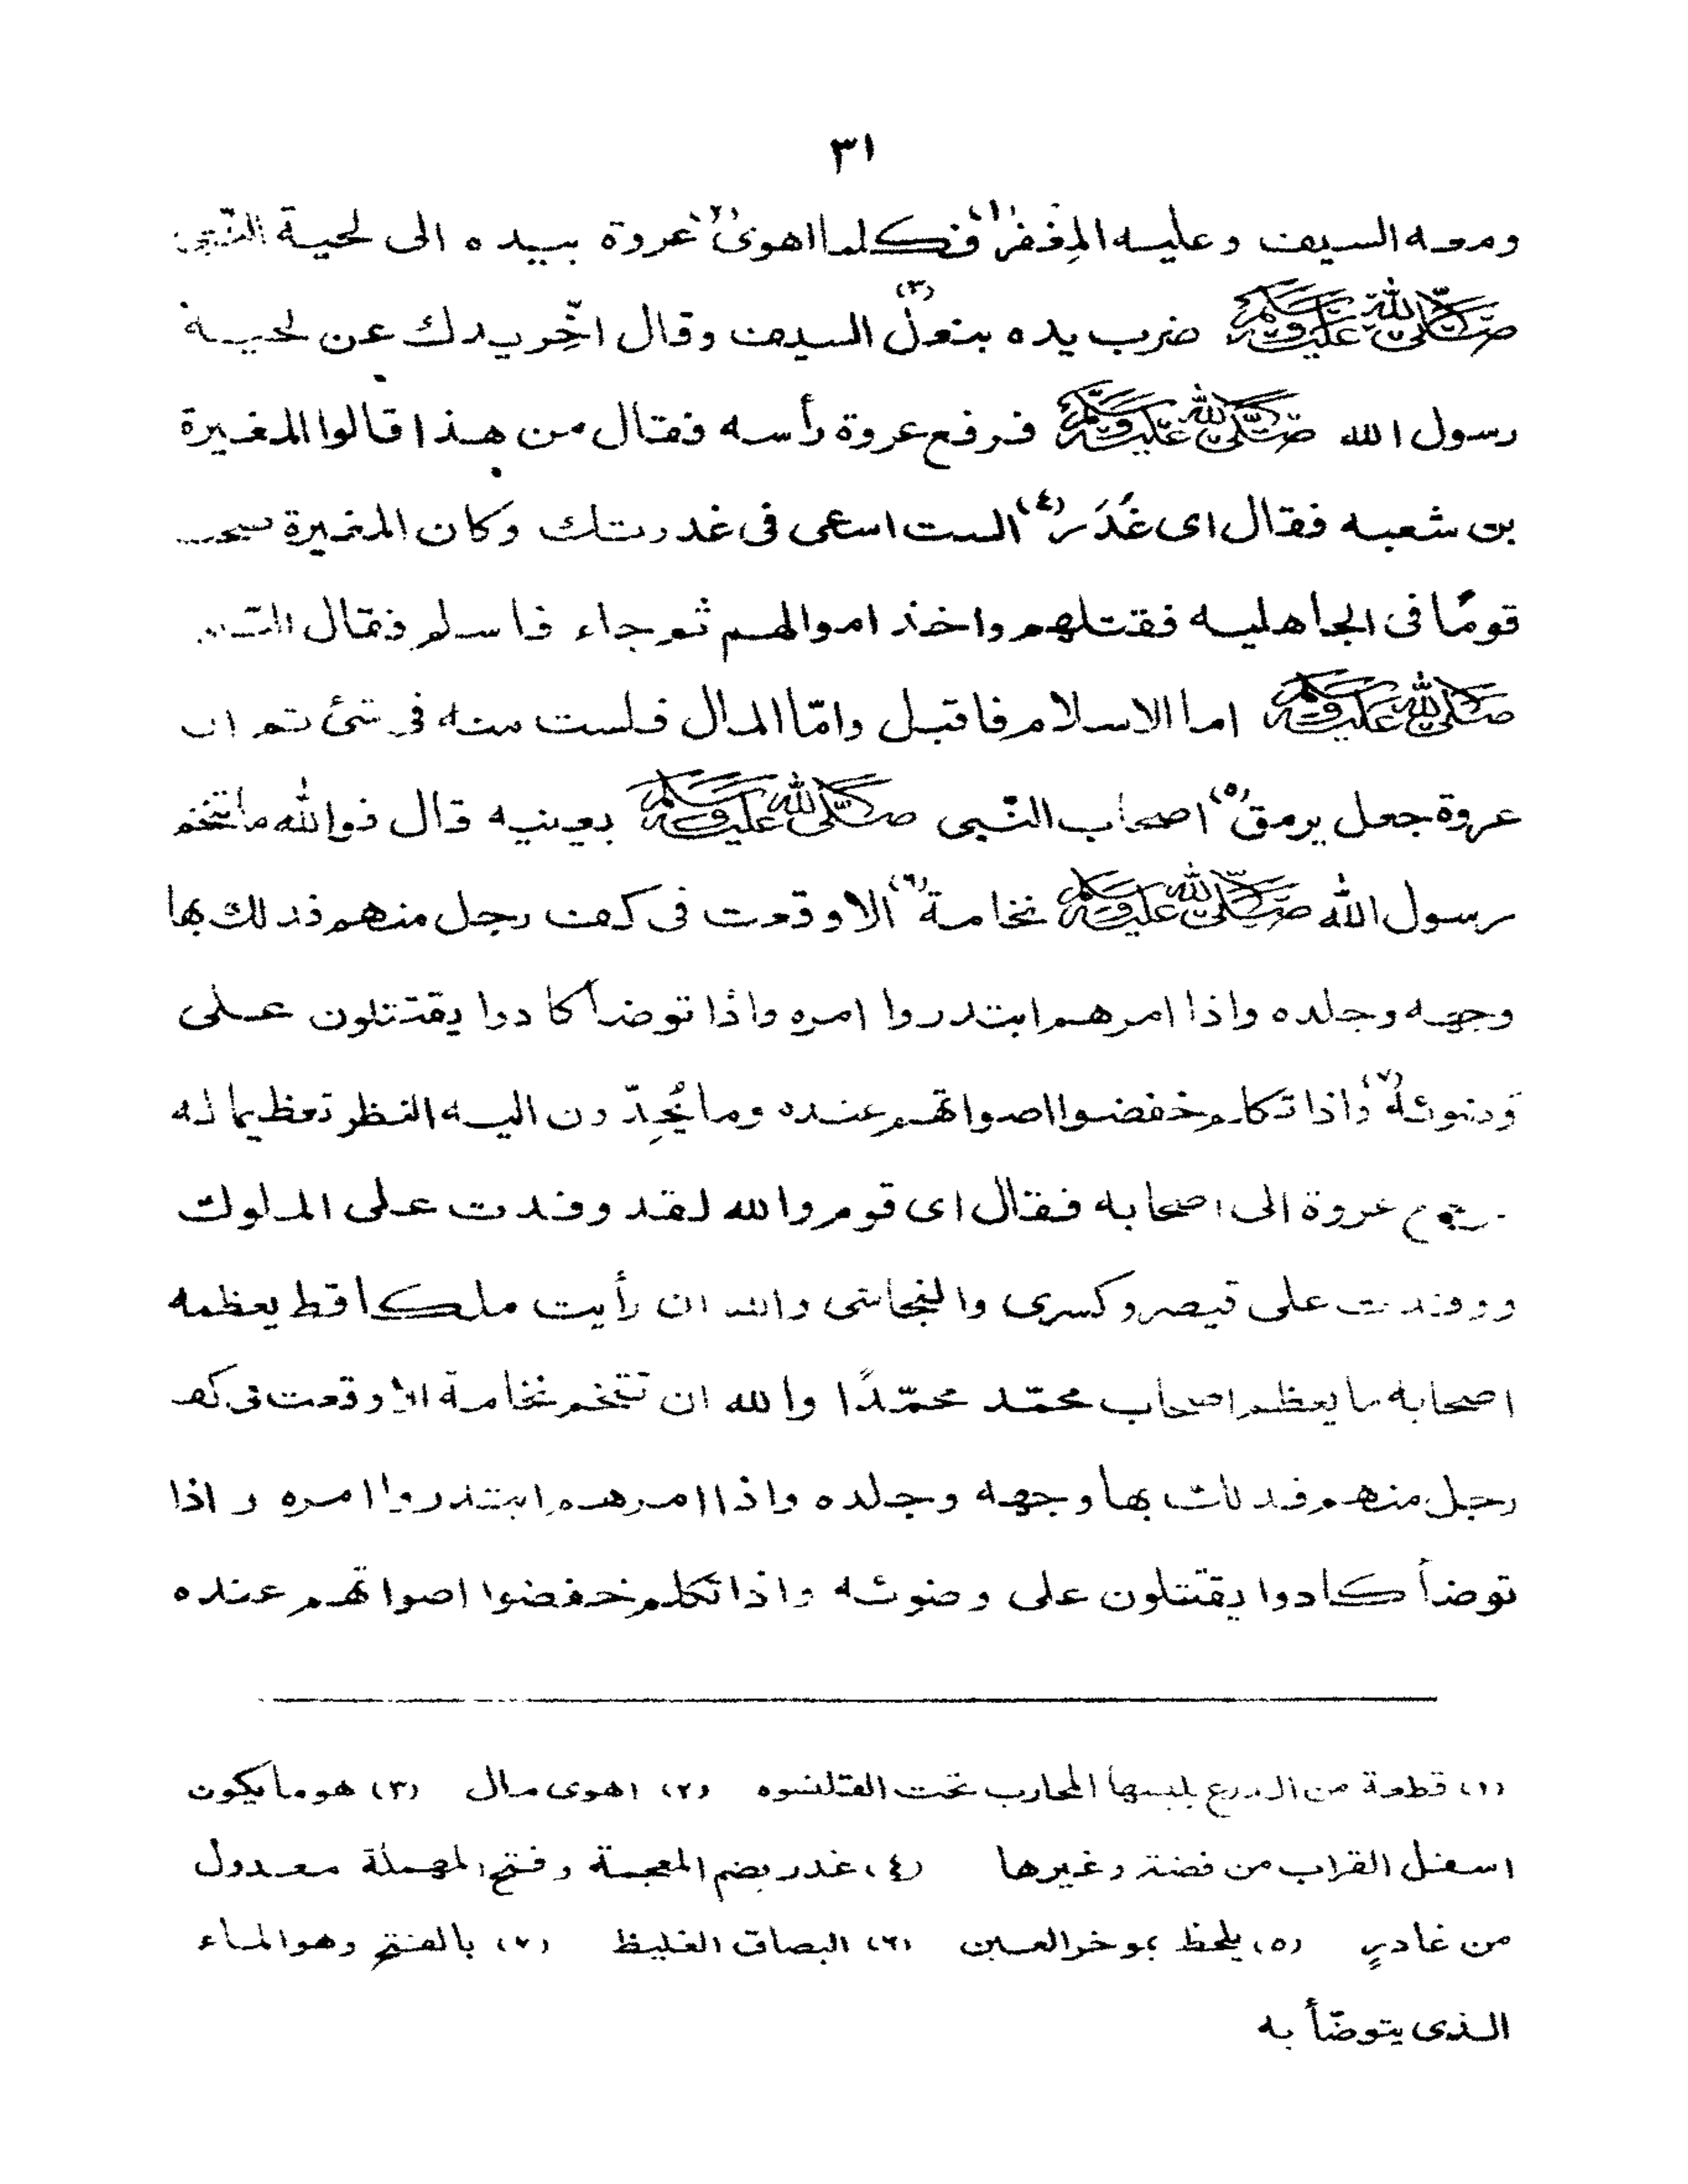 ٣١
ومعه السيف وعليه المِغفر(١) فكلما اهوى(٢) عروة بيده الى لحية النّبى
صلّى الله عليه وسلم ضرب يده بنعل(٣) السيف وقال اخِّر يدك عن لحية
رسول الله صلّى الله عليه وسلم فرفع عروة رأسه فقال من هذا قالوا المغيرة
بن شعبه فقال اى غُدَر(٤) الست اسعى فى غدرتك وكان المغيرة صحب
قومًا فى الجاهليه فقتلهم واخذ اموالهم ثم جاء فاسلم فقال
صلى الله عليه وسلم اما الاسلام فاقبل وامّا المال فلست منه فى شئ ثم ان
عروة جعل يرمق(٥) اصحاب النّبى صلّى الله عليه وسلم بعينيه قال فوالله ما تنخم
رسول الله صلّى الله عليه وسلم نخامة(٦) الا وقعت فى كف رجل منهم فدلك بها
وجهه وجلده واذا امرهم ابتدروا امره واذا توضأ كادوا يقتتلون على
وضوئه(٧) واذا تكلم خفضوا اصواتهم عنده وما يُحِدّون اليه النظر تعظيما له
فرجع عروة الى اصحابه فقال اى قوم والله لقد وفدت على الملوك
ووفدت على قيصر وكسرى والنجاشى والله ان رأيت ملكا قط يعظمه
اصحابه ما يعظم اصحاب محمّد محمّدًا والله ان تنخم نخامة الا وقعت فى كف
رجل منهم فدلك بها وجهه وجلده واذا امرهم ابتدروا امره واذا
توضأ كادوا يقتتلون على وضوئه واذا تكلم خفضوا اصواتهم عنده
(١) قطعة من الدرع يلبسها المحارب تحت القلنسوه (٢) اهوى مال (٣) هو ما يكون
اسفل القراب من فضة وغيرها (٤) غدر بضم المعجمة وفتح المهملة معدول
من غادرٍ (٥) يلحظ بموخر العين (٦) البصاق الغليظ (٧) بالفتح وهو الماء
الذى يتوضّأ به